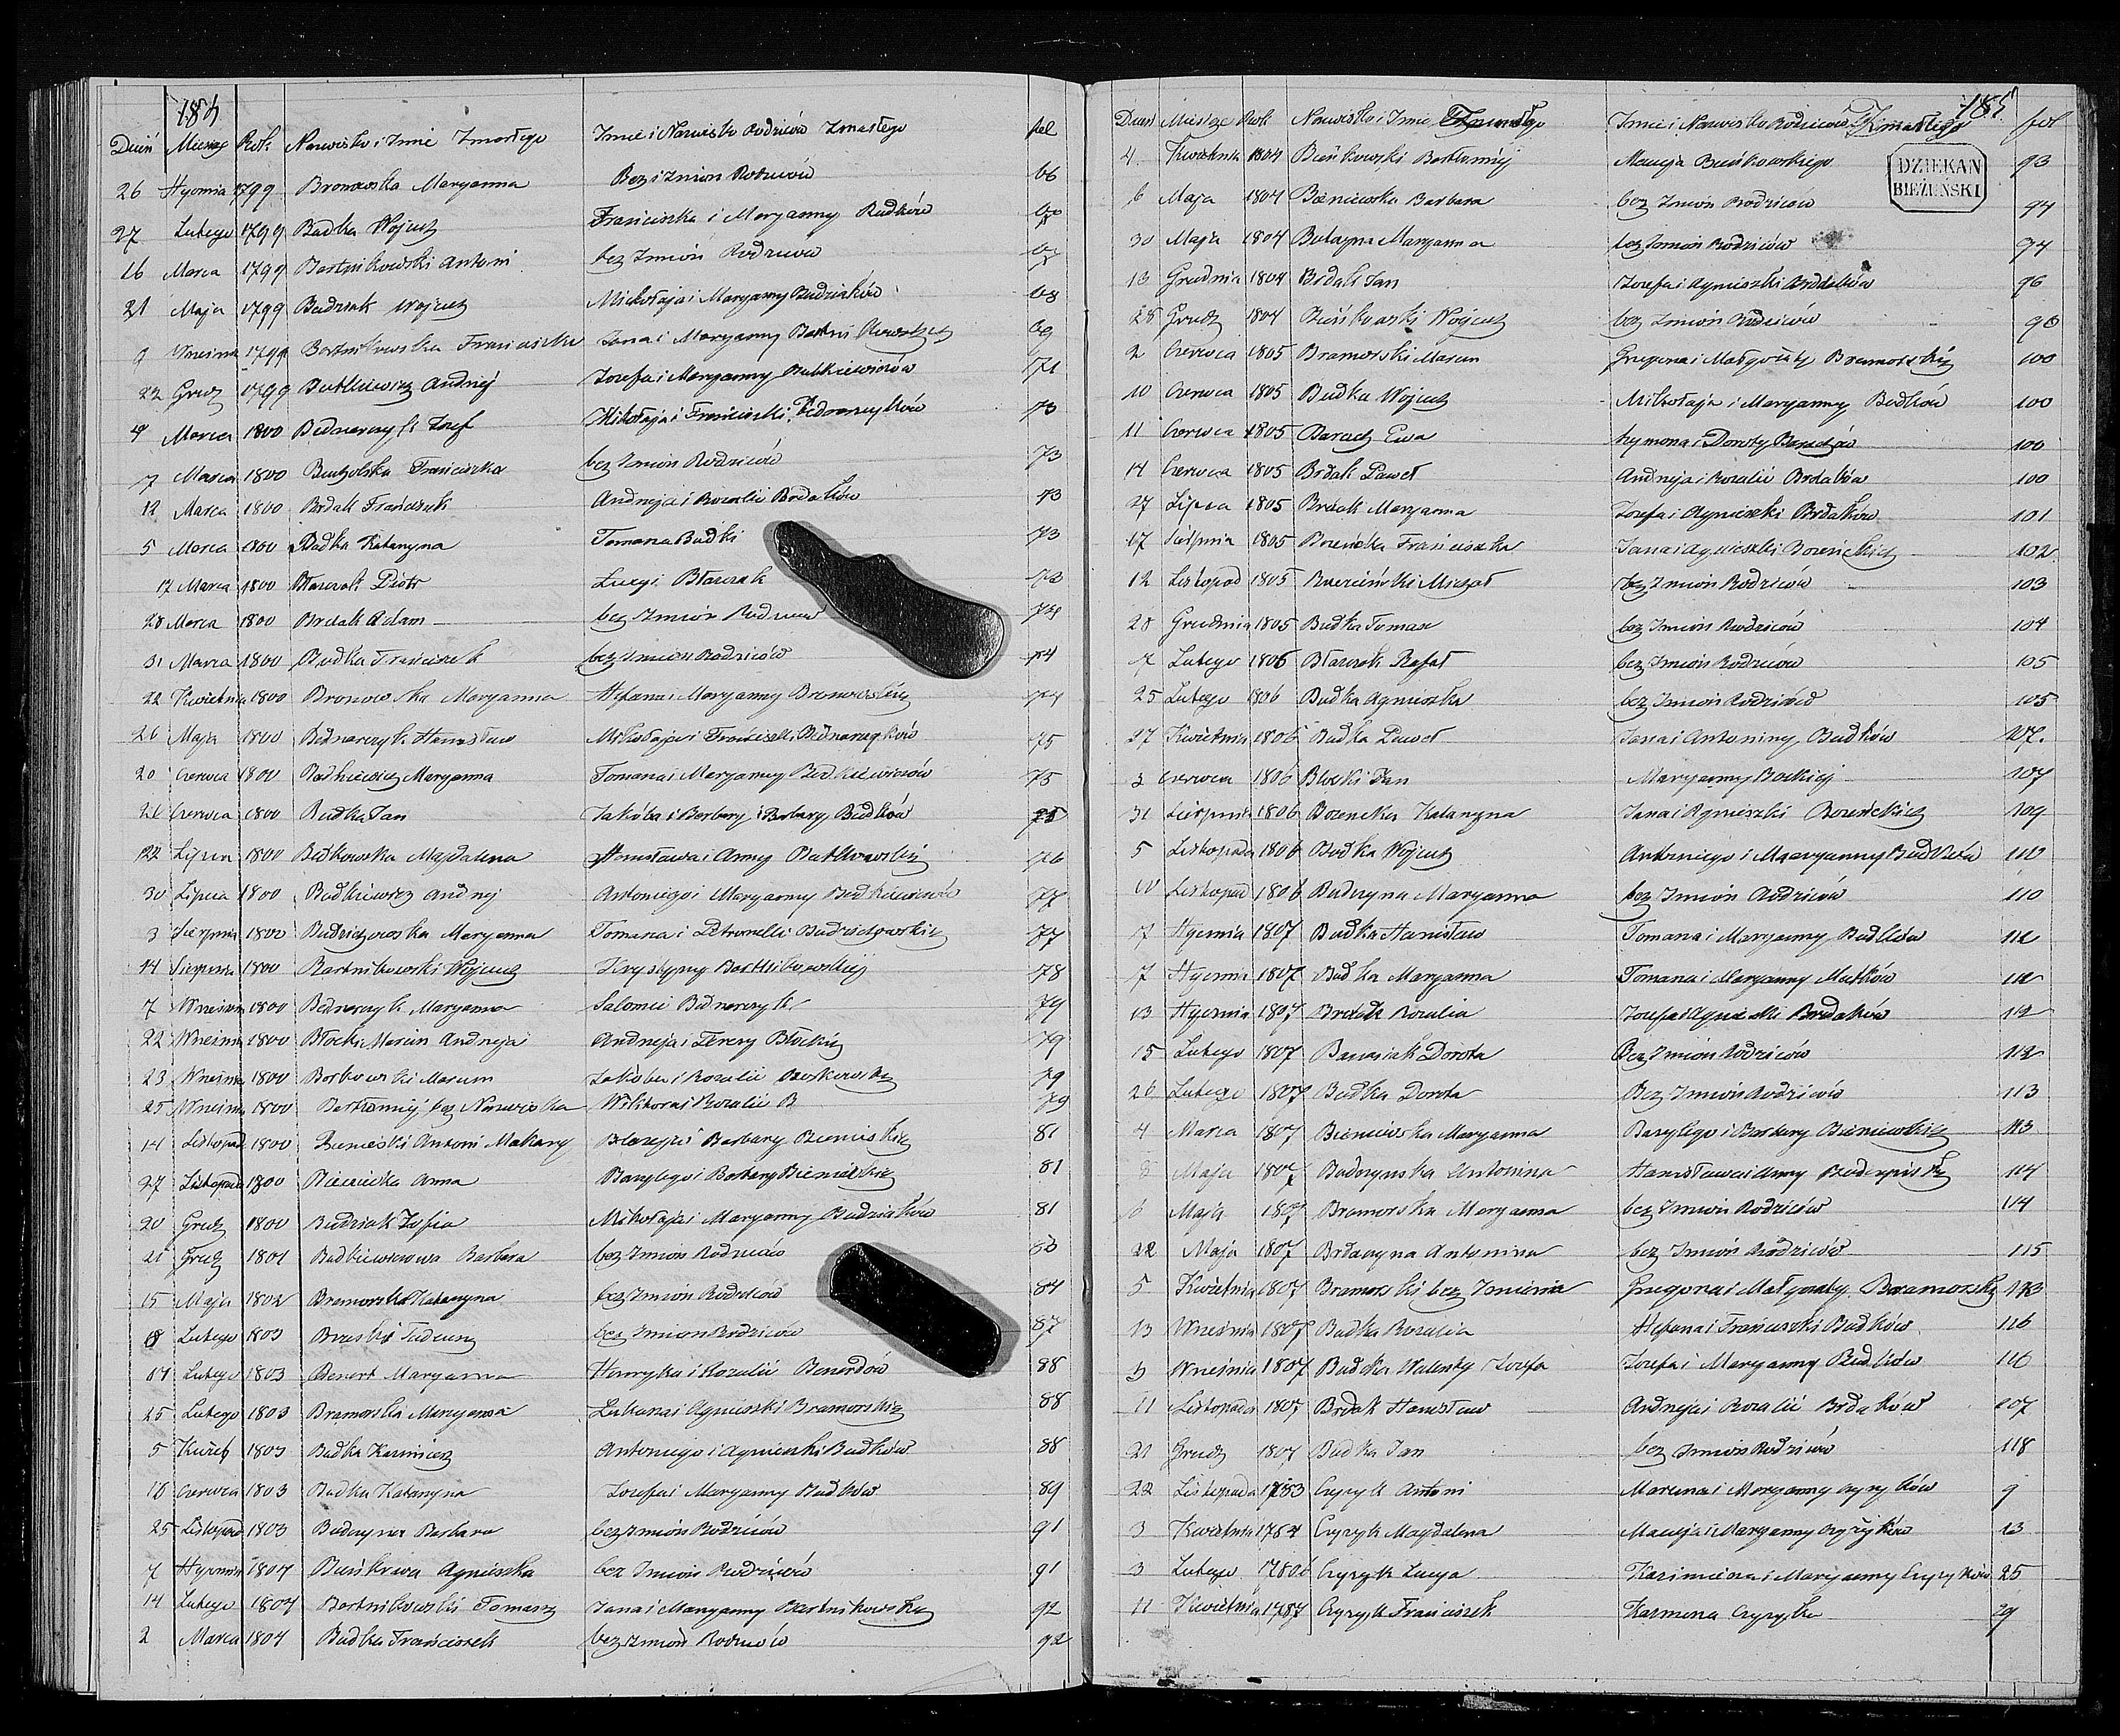 184
Dzień Miesiąc Rok Nazwisko i Imie Zmarłego Imie i Nazwisko Rodziców Zmarłego fol
26 Stycznia 1799 Bronowska Maryanna Bez imion Rodziców 66
27 Lutego 1799 Budka Wojciech Franciszka i Maryanny Budków
16 Marca 1799 Bartnikowski Antoni bez Imion Rodziców
21 Maja 1799 Budziak Wojciech Mikołaja i Maryanny Budziaków 68
9 Września 1799 Bartnikowska Franciszka Jana i Maryanny Bartnikowskich 69
22 Grudz 1799 Budkiewicz Andrzej Jozefa i Maryanny Budkiewiczów 71
4 Marca 1800 Bednarczyk Jozef Mikołaja i Franciszki Bednarczyków 73
7 Marca 1800 Franciszka bez Imion Rodziców 73
12 Marca 1800 Brdak Franciszek Andrzeja i Rozalii Brdaków 73
5 Marca 1800 Budka Katarzyna Tomasza Budki 73
17 Marca 1800 Błaszczak Piotr Łucyi Błaszczak 73
28 Marca 1800 Brdak Adam bez Imion Rodziców 74
31 Marca 1800 Budka Franciszek bez Imion Rodziców 74
22 Kwietnia 1800 Bronowska Maryanna Stefana i Maryanny Bronowskich 74
26 Maja 1800 Bednarczyk Stanisław Mikołaja i Franciszki Bednarczyków 75
20 Czerwca 1800 Budkiewicz Maryanna Tomasza i Maryanny Budkiewiczów 75
26 Czerwca 1800 Budka Jan Jakóba i Barbary i Barbary Budków 75
22 Lipca 1800 Budkowska Magdalena Stanisława i Anny Budkowskich 76
30 Lipca 1800 Budkiewicz Andrzej Antoniego i Maryanny Budkiewiczów 77
3 Sierpnia 1800 Maryanna Tomasza i Petronelli 77
14 Sierpnia 1800 Bartnikowski Wojciech Krystyny Bartnikowskiej 78
7 Wrześni 1800 Bednarczyk Maryanna Salomei Bednarczyk 79
22 Wrześni 1800 Błocki Marcin Andrzeja Andrzeja i Teresy Błockich 79
23 Wrześni 1800 Borkowski Marcin Jakoba i Rozalii Borkowskich 79
25 Wrześni 1800 Bartłomiej bez Nazwiska Wiktora i Rozalii B 79
14 Listopad 1800 Bieniecki Antoni Makary Błażeja i Barbary 81
27 Listopada 1800 Anna Bazylego i Barbary 81
20 Grudz 1800 Budziak Zofia Mikołaja i Maryanny Budziaków 81
21 Grudz 1801 Budkiewiczowa Barbara bez Imion Rodziców 83
15 Maja 1802 Bramorska Katarzyna bez Imion Rodziców 84
18 Lutego 1803 Brzeski Tadeusz bez Imion Rodziców 87
14 Lutego 1803 Benert Maryanna Henryka i Rozalii Benerdów 88
25 Lutego 1803 Bramorska Maryanna Łukasza i Agnieszki Bramorskich 88
5 Kwiet 1803 Budka Kazimierz Antoniego i Agnieszki Budków 88
18 Czerwca 1803 Budka Katarzyna Jozefa i Maryanny Budków 89
25 Listopad 1803 Budczyna Barbara bez Imion Rodziców 91
7 Stycznia 1804 Bieńkowa Agnieszka bez Imion Rodziców 91
14 Lutego 1804 Bartnikowski Tomasz Jana i Maryanny Bartnikowskich 92
2 Marca 1804 Budka Franciszek bez Imion Rodziców 92
185
Dzień Miesiąc Rok Nazwisko i Imie Zmarłego Imie i Nazwisko Rodziców Zmarłego fol
DZIEKAN
BIEŻUŃSKI
4 Kwietnia 1804 Bieńkowski Bartłomiej Macieja Bieńkowskiego 93
6 Maja 1804 Bieniewska Barbara bez Imion Rodziców 94
30 Maja 1804 Maryanna bez Imion Rodziców 94
13 Grudnia 1804 Brdak Jan Jozefa i Agnieszki Brdaków 96
28 Grudz 1804 Bieńkowski Wojciech bez Imion Rodziców 96
2 Czerwca 1805 Bramorski Marcin Grzegorza i Małgorzaty Bramorskich 100
10 Czerwca 1805 Budka Wojciech Mikołaja i Maryanny Budków 100
11 Czerwca 1805 Ewa Szymona i Doroty 100
14 Czerwca 1805 Brdak Paweł Andrzeja i Rozalii Brdaków 100
27 Lipca 1805 Brdak Maryanna Jozefa i Agnieszki Brdaków 101
17 Sierpnia 1805 Bozeńcka Franciszka Jana i Agnieszki Bozeńckich 102
12 Listopad 1805 Michał bez Imion Rodziców 103
28 Grudnia 1805 Budka Tomasz bez Imion Rodziców 104
7 Lutego 1806 Błaszczak Rafał bez Imion Rodziców 105
25 Lutego 1806 Budka Agnieszka bez Imion Rodziców 105
27 Kwietnia 1806 Budka Paweł Jana i Antoniny Budków 107
3 Czerwca 1806 Błocki Jan Maryanny Bockiej 107
31 Sierpnia 1806 Bozencka Katarzyna Jana i Agnieszki Bozeńckich 109
5 Listopada 1806 Budka Wojciech Antoniego i Maryanny Budków 110
10 Listopad 1806 Budczyna Maryanna bez Imion Rodziców 110
7 Stycznia 1807 Budka Stanisław Tomasza i Maryanny Budków 112
7 Stycznia 1807 Budka Maryanna Tomasza i Maryanny 112
13 Stycznia 1807 Brdak Rozalia Jozefa i Agnieszki Brdaków 112
15 Lutego 1807 Banasiak Dorota Bez Imion Rodziców 112
26 Lutego 1807 Budka Dorota Bez Imion Rodziców 113
4 Marca 1807 Bieniewska Maryanna Bazylego i Barbary Bieniewskich 113
5 Maja 1807 Budzynska Antonina Stanisława i Anny 114
6 Maja 1807 Bramorska Maryanna bez Imion Rodziców 114
22 Maja 1807 Brdaczyna Antonina bez Imion Rodziców 115
5 Kwietnia 1807 Bramorski bez Imienia Grzegorza i Małgorzaty Bramorskich 113
13 Września 1807 Budka Rozalia Stefana i Franciszki Budków 116
Września 1807 Budka Walenty Jozefa Jozefa i Maryanny Budków 116
11 Listopada 1807 Brdak Stanisław Andrzeja i Rozalii Brdaków
21 Grudz 1807 Budka Jan bez Imion Rodziców 118
22 Listopada 1783 Czyzyk Antoni Marcina i Maryanny Czyzyków 9
3 Kwietnia 1784 Czyzyk Magdalena Macieja i Maryanny Czyżyków 13
3 Lutego 1786 Czyzyk Łucya Kazimierza i Maryanny Czyzyków 25
11 Kwietnia 1787 Czyzyk Franciszek Kazmierza Czyzyka 29